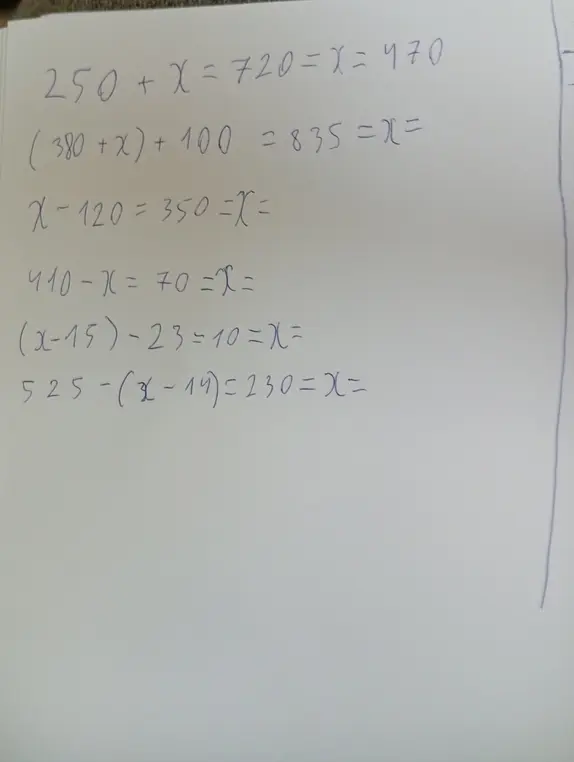 250 + x = 720 = x = 470
(380 + x) + 100 = 835 = x =
x - 120 = 350 = x =
410 - x = 70 = x =
(x - 15) - 23 = 10 = x =
525 - (x - 14) = 230 = x =